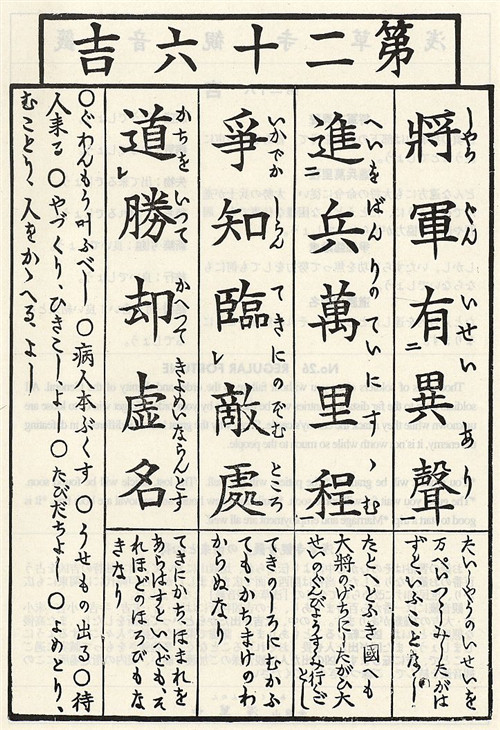 第二十六吉
將軍有異聲
しやうぐんいせいあり
進二兵萬里程
へいをばんりのていにすゝむ
爭知臨レ敵處
いかでかしらんてきにのぞむところ
道レ勝却虚名
かちをいつてかへつてきよめいならんとす
たいしやうのいせいを
万ぺいつゝしみしたがは
ずといふことなし
たとへとふき國へも
大將のけぢにしたがひ大
せいのぐんぴやうすゝみ行ごとし
てきのところにむかふ
てもかちまけのわ
からぬなり
てきにかちほまれを
あらはすといへども、そ
れほどのほろびもな
きなり
〇ぐわんもう叶ふべし 〇病人本ぶくす 〇うせもの出る〇待
人来る 〇やづくり、ひきこしよし〇たびだちよし 〇よめとり、
むことり、人をかゝへる、よし